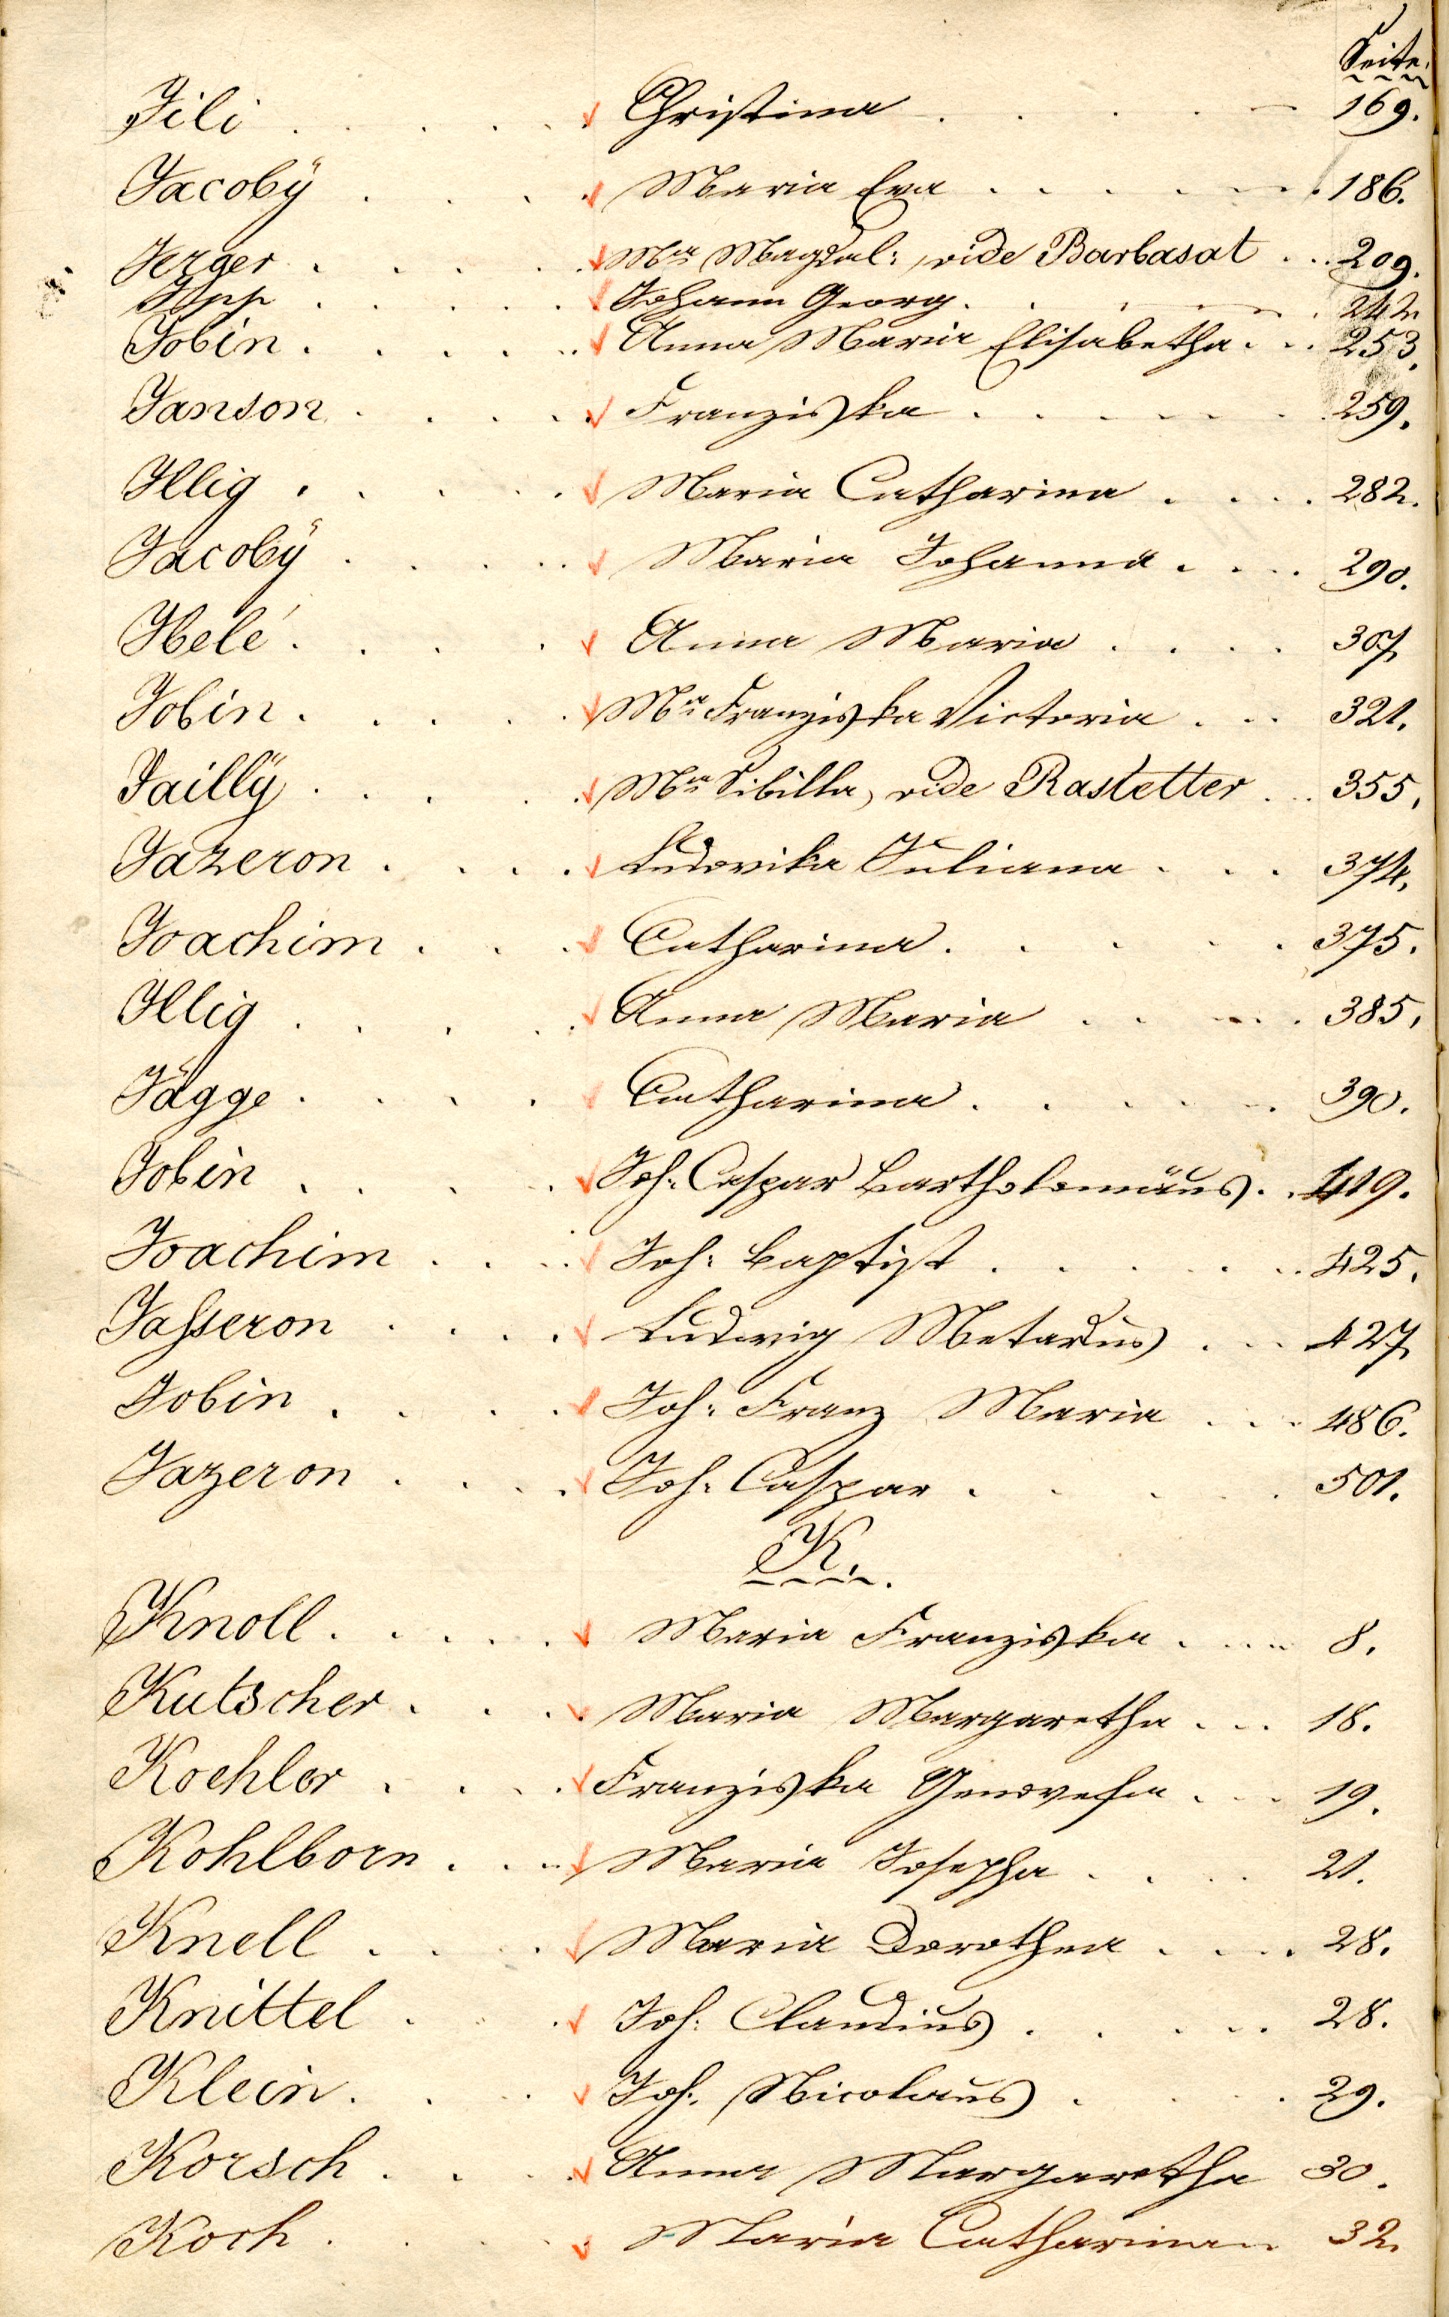 Seite.
Jili . . . . . Christina . . . . 169.
Jacobÿ . . . . Maria Eva . . . . . 186.
Jerger . . . . . Mra Magdal: vide Barbasat . . 209.
Ipp . . . . . Johann Georg. . . . . 242.
Jobin . . . . . Anna Maria Elisabetha . . . 253.
Janson . . . . Franziska . . . . . . 259.
Illig . . . . . Maria Catharina . . . . 282.
Jacobÿ . . . . Maria Johanna . . . . 290.
Ibelé . . . . Anna Maria . . . . 307.
Jobin . . . . . Mra Franziska Victoria . . . 321.
Jaillÿ . . . . . Mra Sibilla, vide Rastetter . . 355.
Jazeron . . . . Ludovika Juliana . . . 374.
Joachim . . . Catharina . . . . . 375.
Illig . . . . . Anna Maria . . . . . 385.
Jägge . . . . Catharina . . . . . 390.
Jobin . . . . . Joh: Caspar Bartholomäus . . 419.
Joachim . . . . Joh: Baptist . . . . . . 425.
Jasseron . . . . Ludwig Metardus . . . 427.
Jobin . . . . Joh: Franz Maria . . . 486.
Jazeron . . . . Joh: Caspar . . . . 501.
K.
Knoll . . . . . Maria Franziska . . . . 8.
Kutscher . . . . Maria Margaretha . . . 18.
Koehler . . . . Franziska Genovefa . . . 19.
Kohlborn . . . Maria Josepha . . . . 21.
Knell . . . . Maria Dorothea . . . . 28.
Knittel . . . Joh: Claudius . . . . . 28.
Klein . . . Joh: Nicolaus . . . . 29.
Korsch . . . . Anna Margaretha 30.
Koch . . . . Maria Catharina . 32.